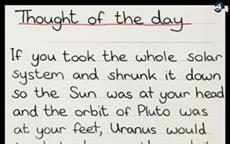 Thought of the day
If you took the whole solar
system and shrunk it down
so the Sun was at your head
and the orbit of Pluto was
at your feet, Uranus would